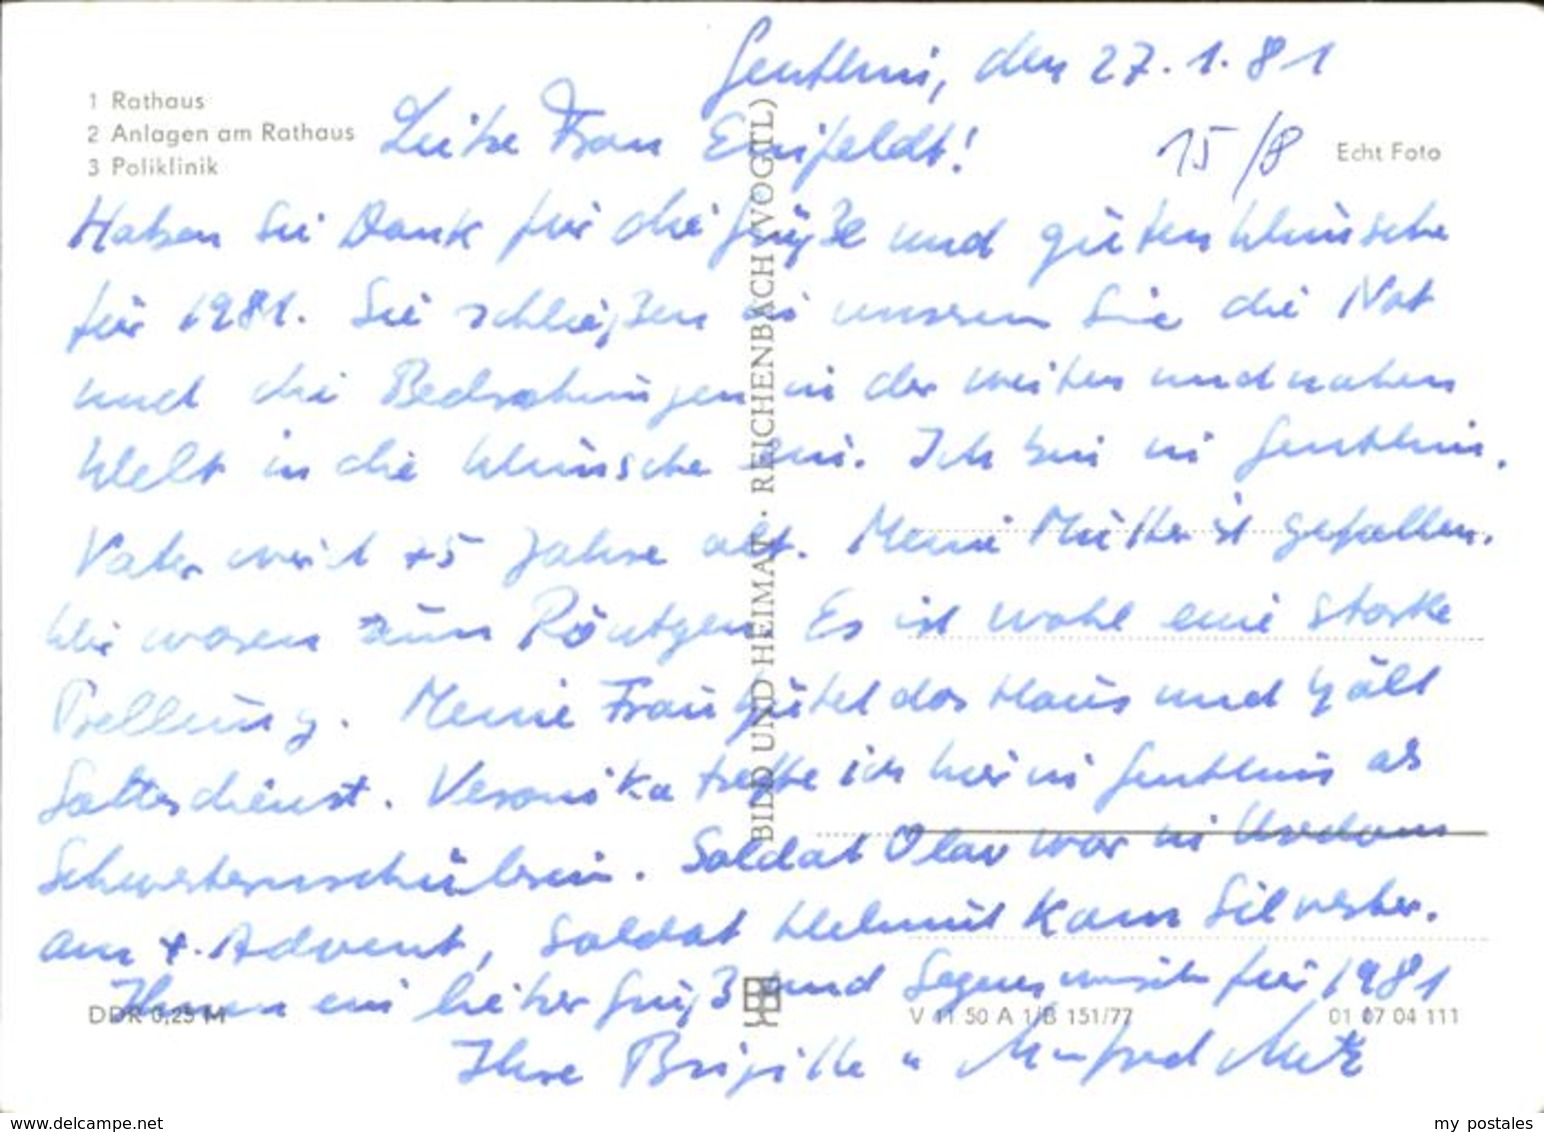 Genthin, den 27.1.81
1 Rathaus
2 Anlagen am Rathaus
3 Poliklinik
Liebe Frau
15/8
Echt Foto
Haben Sie Dank für die Grüße und guten Wünsche
für 1981. Sie schließen in unserem Sinne die Not
und die Bedrohungen in der weiten und nahen
Welt in die Wünsche ein. Ich bin in Genthin.
Vater wird 75 Jahre alt. Meine Mutter ist gefallen.
Wir waren zum Röntgen. Es ist wohl eine starke
Prellung. Meine Frau hütet das Haus und hält
dienst. Veronika treffe ich hier in Genthin als
Schwesternschülerin. Soldat Olav war in
am 4. Advent, Soldat Helmut kam Silvester.
Ihnen ein lieber Gruß und Segenswunsch für 1981
Ihre Brigitte u Manfred
BILD UND HEIMAT · REICHENBACH (VOGTL)
DDR 0,25 M
V 11 50 A 1/B 151/77
01 07 04 111
www.delcampe.net
my_postales